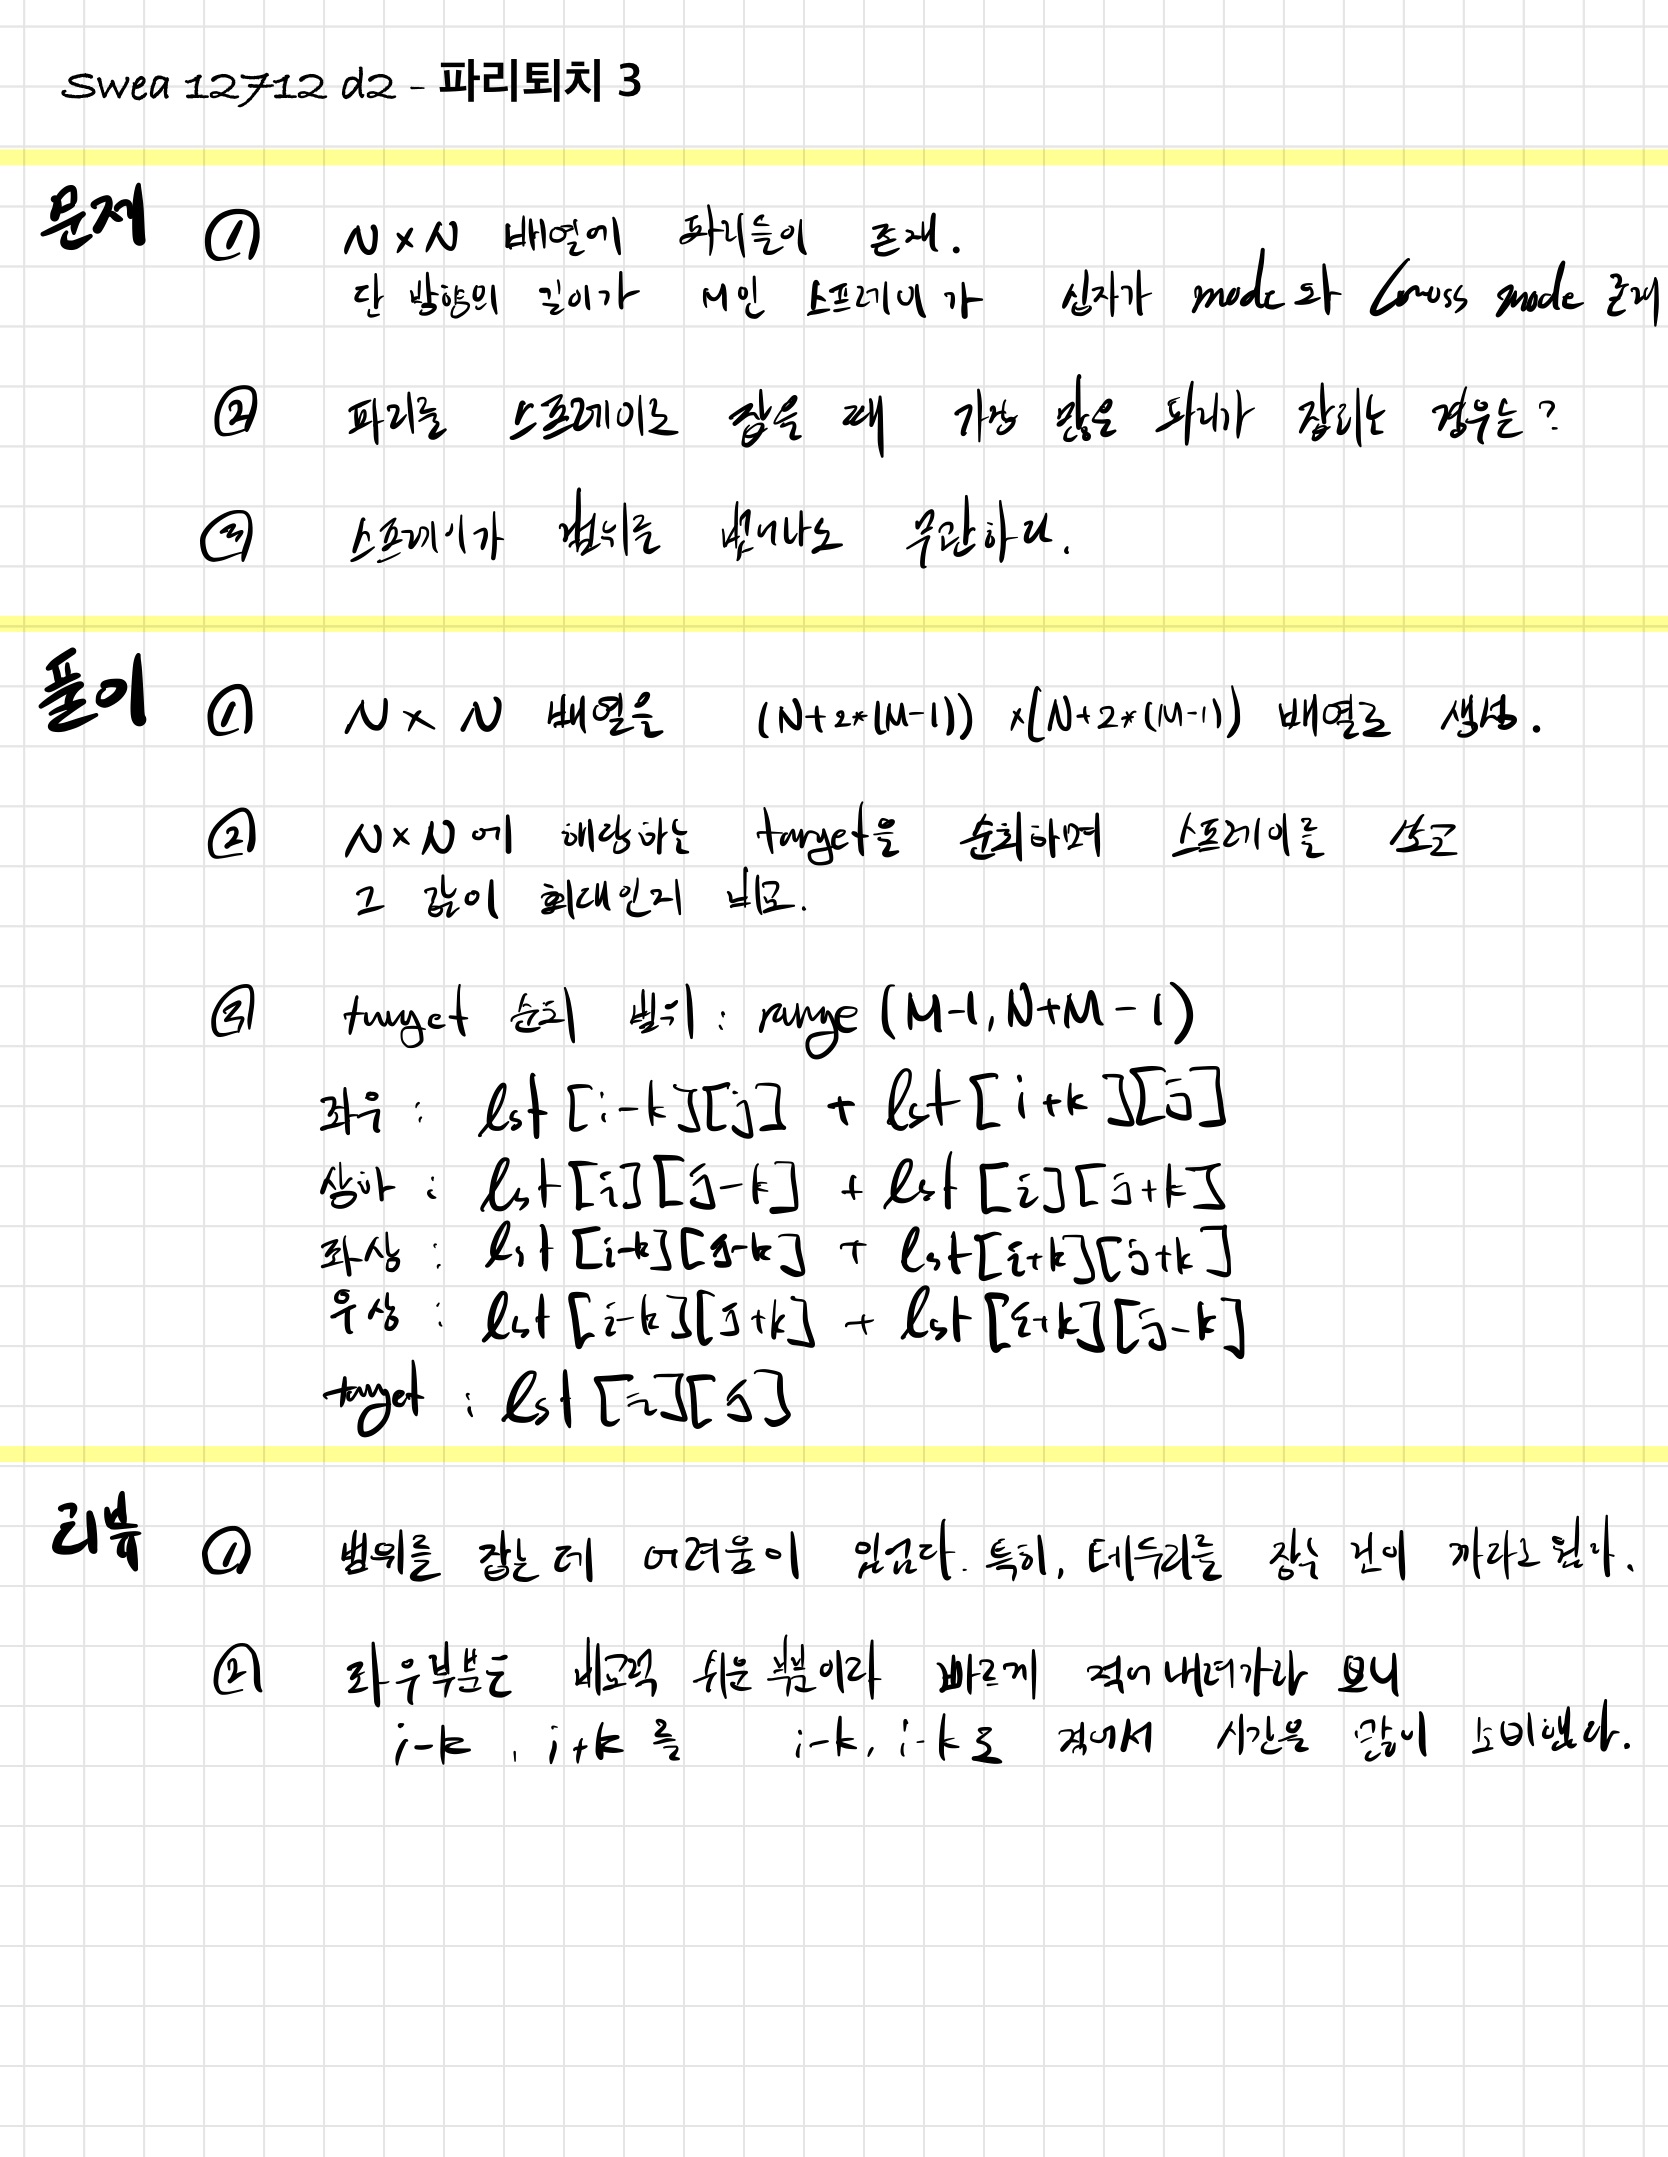 Swea 12712 d2 - 파리퇴치 3
문제 ① N x N 배열에 파리들이 존재.
단 방향의 길이가 M인 스프레이가 십자가 mode와 Cross mode 존재
② 파리를 스프레이로 잡을 때 가장 많은 파리가 잡히는 경우는?
③ 스프레이가 범위를 벗어나도 무관하다.
풀이 ① N x N 배열을 (N+2*(M-1)) x (N+2*(M-1)) 배열로 생성.
② N x N에 해당하는 target을 순회하며 스프레이를 쏘고
그 값이 최대인지 비교.
③ target 순회 범위 : range (M-1, N+M-1)
좌우 : lst [i-k][j] + lst [i+k][j]
상하 : lst [i][j-k] + lst [i][j+k]
좌상 : lst [i-k][j-k] + lst[i+k][j+k]
우상 : lst [i-k][j+k] + lst [i+k][j-k]
target : lst [i][j]
리뷰 ① 범위를 잡는데 어려움이 있었다. 특히, 테두리를 장수 건이 까다로웠다.
② 좌우부분도 비교적 쉬운 부분이라 빠르게 적어내려가라 보니
i-k, i+k를 i-k, i-k로 적어서 시간을 많이 소비했다.